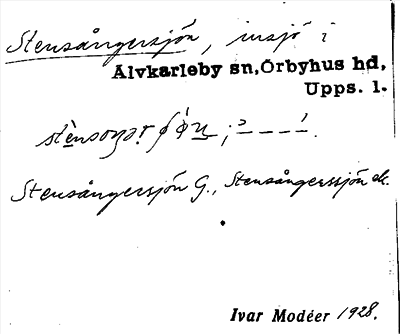 Stensångersjön, insjö i
Älvkarleby sn, Örbyhus hd,
Upps. l.
Stensångersjön G., Stensångerssjön ek.
Ivar Modéer 1928.